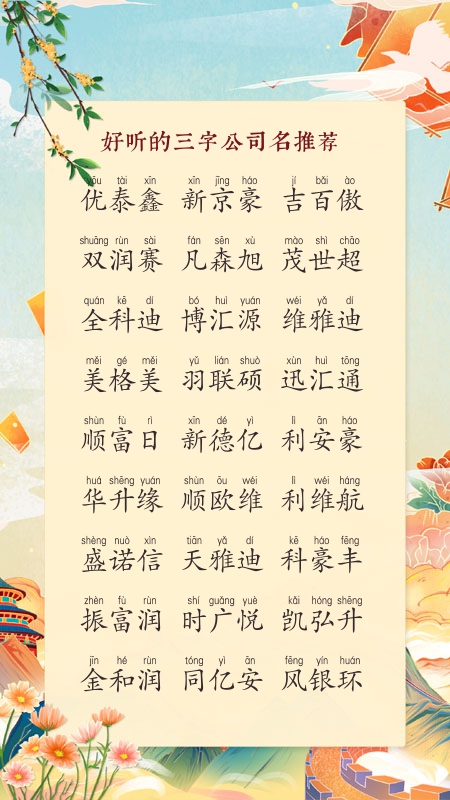 好听的三字公司名推荐
yōu tài xīn xīn jīng háo jí bǎi ào
优泰鑫 新京豪 吉百傲
shuāng rùn sài fán sēn xù mào shì chāo
双润赛 凡森旭 茂世超
quán kē dí bó huì yuán wéi yǎ dí
全科迪 博汇源 维雅迪
měi gé měi yǔ lián shuò xùn huì tōng
美格美 羽联硕 迅汇通
shùn fù rì xīn dé yì lì ān háo
顺富日 新德亿 利安豪
huá shēng yuán shùn ōu wéi lì wéi háng
华升缘 顺欧维 利维航
shèng nuò xìn tiān yǎ dí kē háo fēng
盛诺信 天雅迪 科豪丰
zhèn fù rùn shí guǎng yuè kǎi hóng shēng
振富润 时广悦 凯弘升
jīn hé rùn tóng yì ān fēng yín huán
金和润 同亿安 风银环